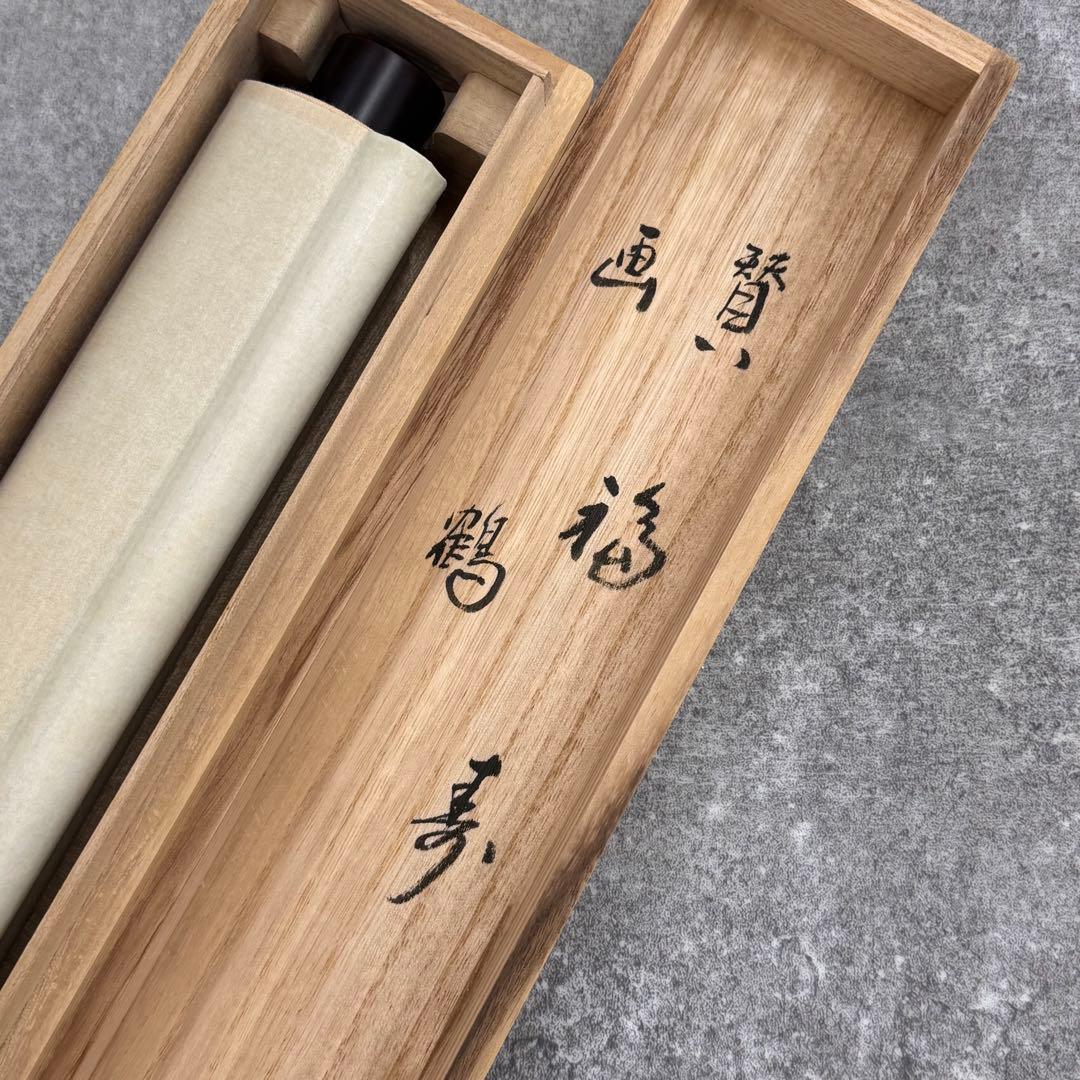 賛 福 寿
画 鶴